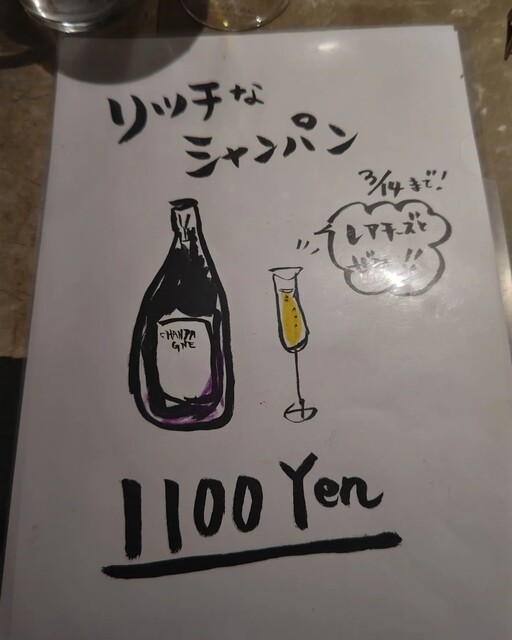 リッチな
シャンパン
3/14まで!
レアチーズと
CHANPA
GNE
1100 Yen